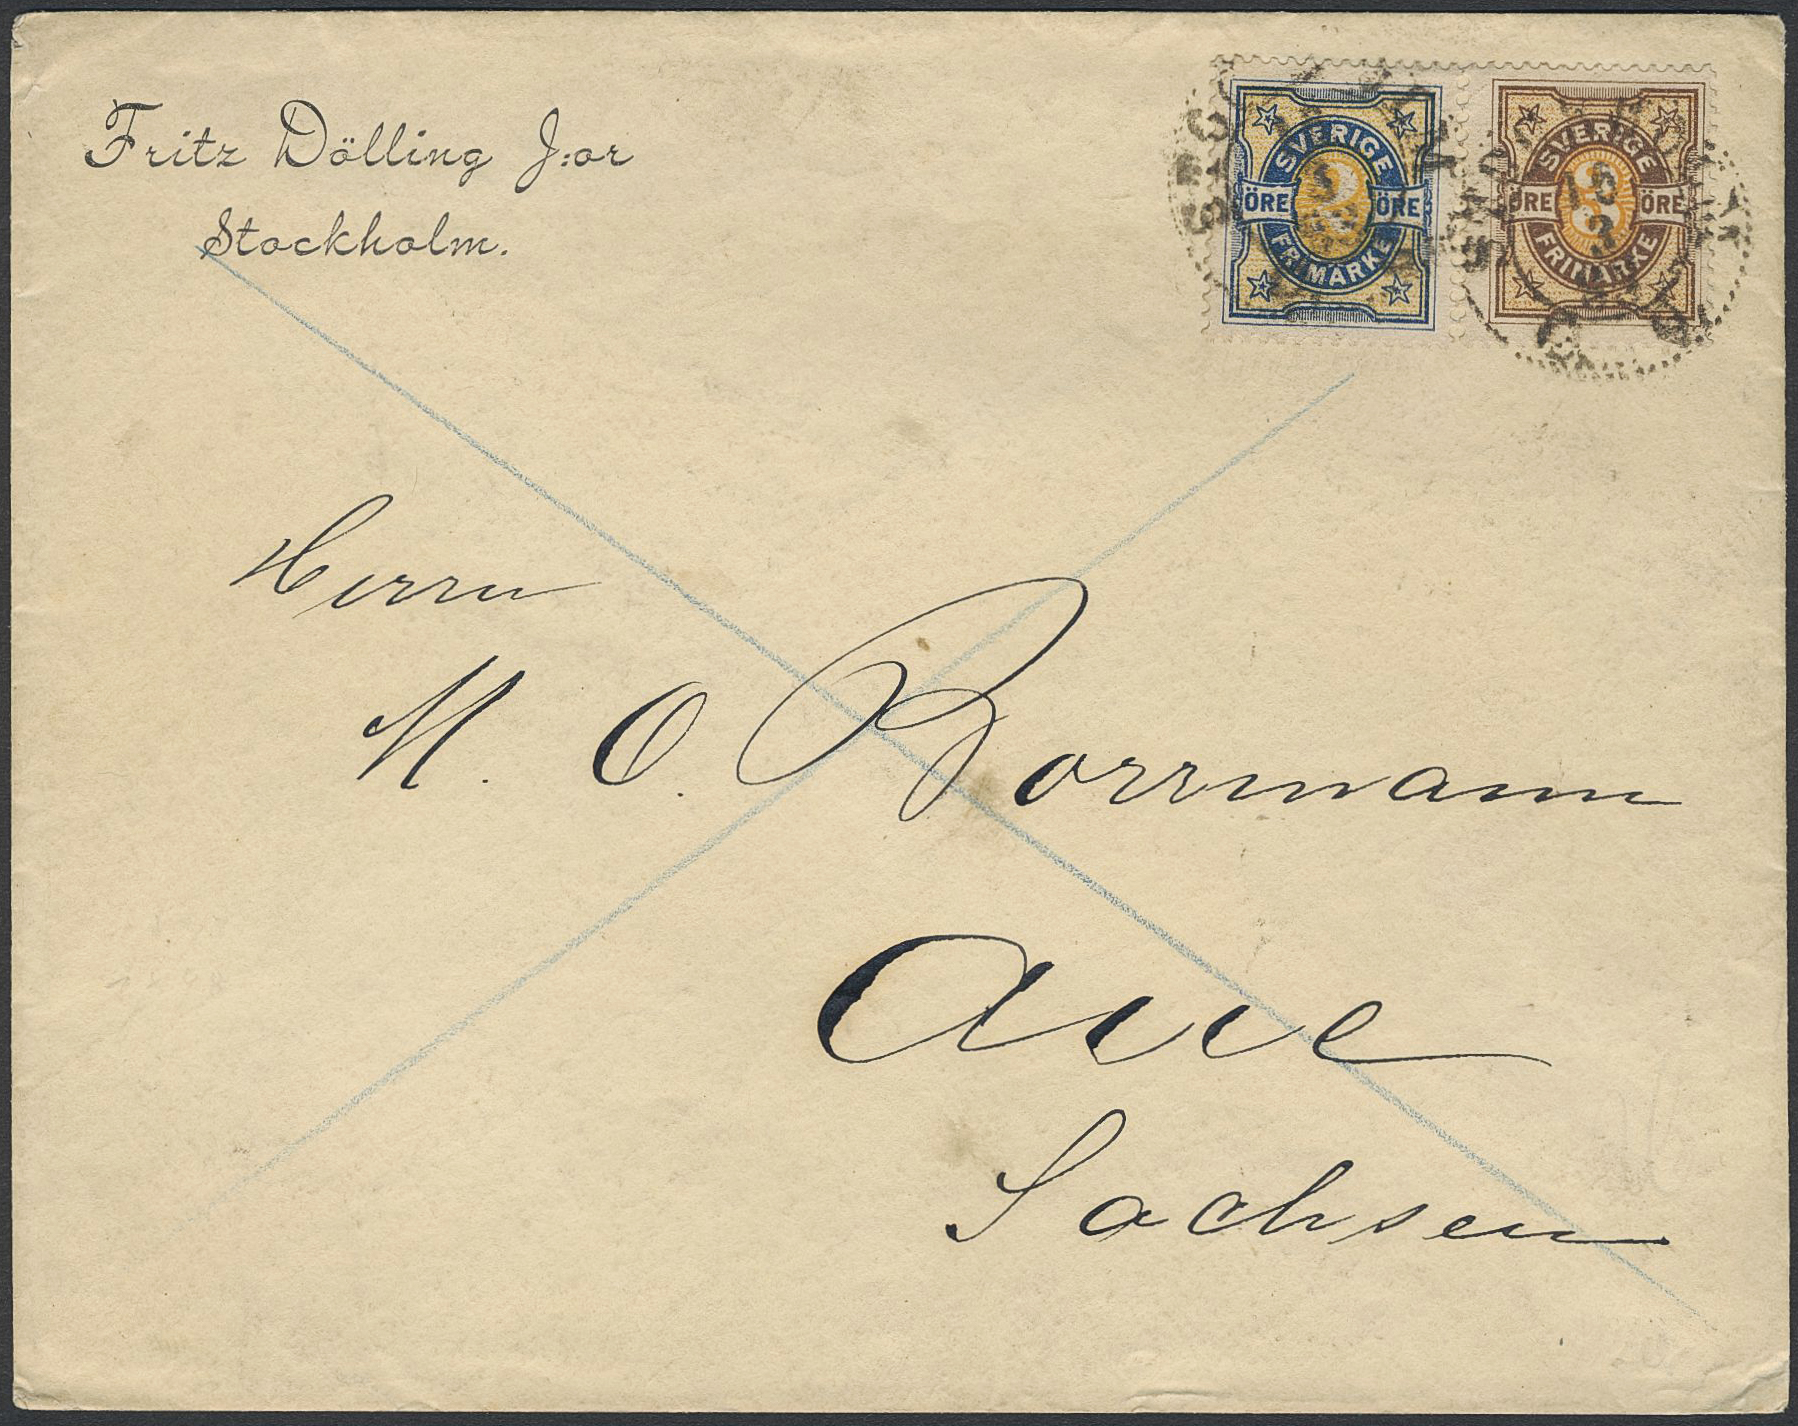 Fritz Dölling J:or
Stockholm.
SVERIGE
2
ÖRE ÖRE
FRIMÄRKE
SVERIGE
3
ÖRE ÖRE
FRIMÄRKE
Herrn
M. O. Borrmann
Aue
Sachsen